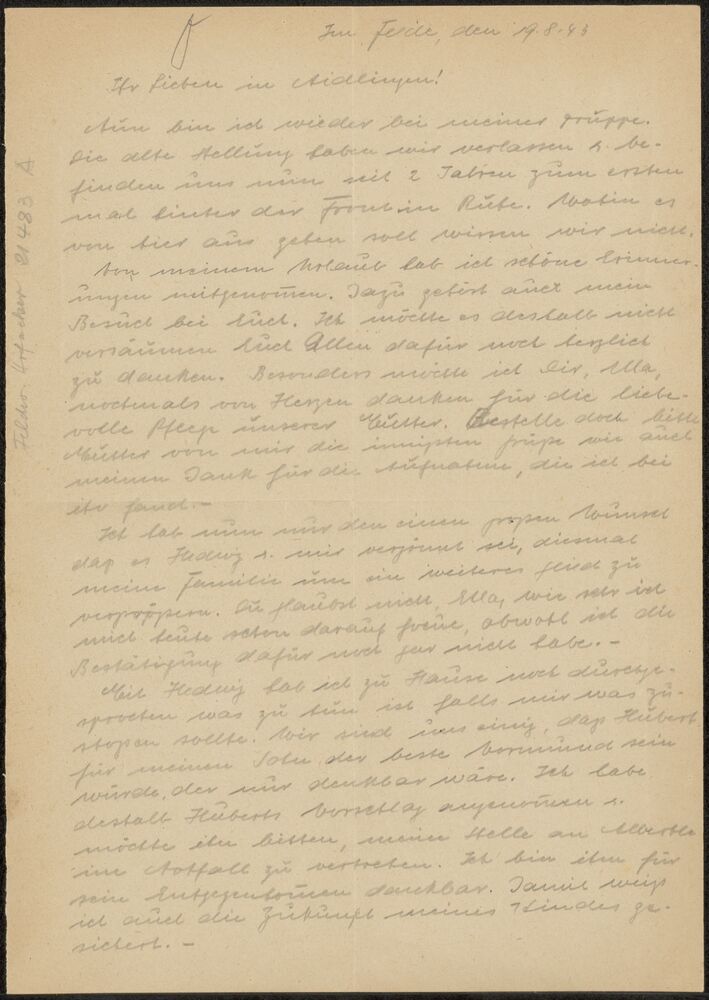 Im Felde, den 19.8.43
Ihr Lieben in Aidlingen!
Nun bin ich wieder bei meiner Gruppe.
Die alte Stellung haben wir verlassen u. be-
finden uns nun seit 2 Jahren zum ersten
mal hinter der Front in Ruhe. Wohin es
von hier aus gehen soll wissen wir nicht.
Von meinem Urlaub hab ich schöne Erinner-
ungen mitgenom̄en. Dazu gehört auch mein
Besuch bei Euch. Ich möchte es deshalb nicht
versäumen Euch Allen dafür noch herzlich
zu danken. Besonders möchte ich Dir, Ella,
nochmals von Herzen danken für die liebe-
volle Pflege unserer Mutter. Bestelle doch bitte
Mutter von mir die innigsten Grüße wie auch
meinen Dank für die Aufnahme, die ich bei
ihr fand. -
Ich hab nun nur den einen großen Wunsch
daß es Hedwig u. mir vergönnt sei, diesmal
meine Familie um ein weiteres Glied zu
vergrößern. Du glaubst nicht, Ella, wie sehr ich
mich heute schon darauf freue, obwohl ich die
Bestätigung dafür noch gar nicht habe. -
Mit Hedwig hab ich zu Hause noch durchge-
sprochen was zu tun ist falls mir was zu-
stoßen sollte. Wir sind uns einig, daß Hubert
für meinen Sohn der beste Vormund sein
würde, der nur denkbar wäre. Ich habe
deshalb Huberts Vorschlag angenom̄en u.
möchte ihn bitten, meine Stelle an
im Notfall zu vertreten. Ich bin ihm für
sein Entgegenkom̄en dankbar. Damit weiß
ich auch die Zukunft meines Kindes ge-
sichert. -
21483 A